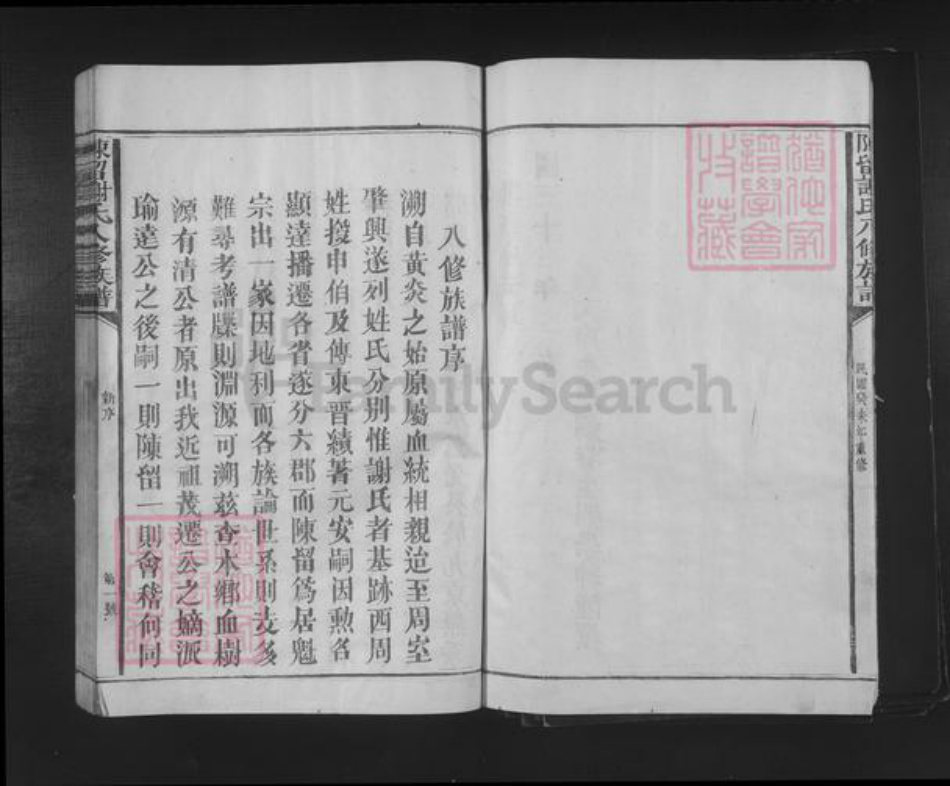 陳留謝氏八修族譜
民國癸未年重修
猶他家譜學會收藏
八修族譜序
溯自黃炎之始原屬血統相親迨至周室
肇興遂列姓氏分別惟謝氏者基跡西周
姓授申伯及傳東晋績著元安嗣因勲名
顯達播遷各省遂分六郡而陳留爲居魁
宗出一家因地利而各族論世系則支多
難尋考譜牒則淵源可溯茲查本鄉血樹
源有清公者原出我近祖茂遷公之嫡派
瑜達公之後嗣一則陳留一則會稽何同
陳留謝氏八修族譜
新序
第一號
FamilySearch